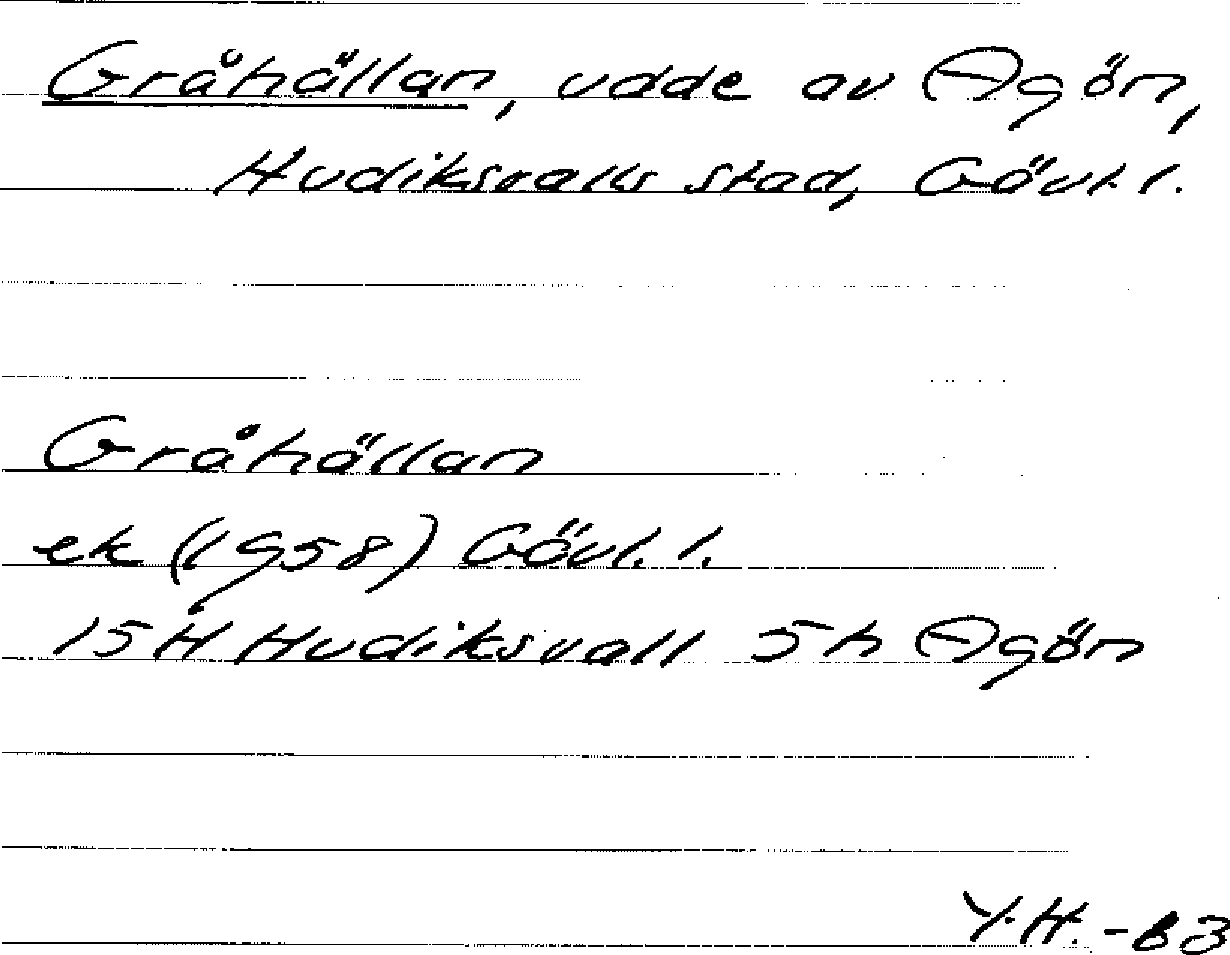 Gråhällan, udde av Agön,
Hudiksvalls stad, Gävl. l.
Gråhällan
ek (1958) Gävl. l.
15 H Hudiksvall 5h Agön
Y.H. -63